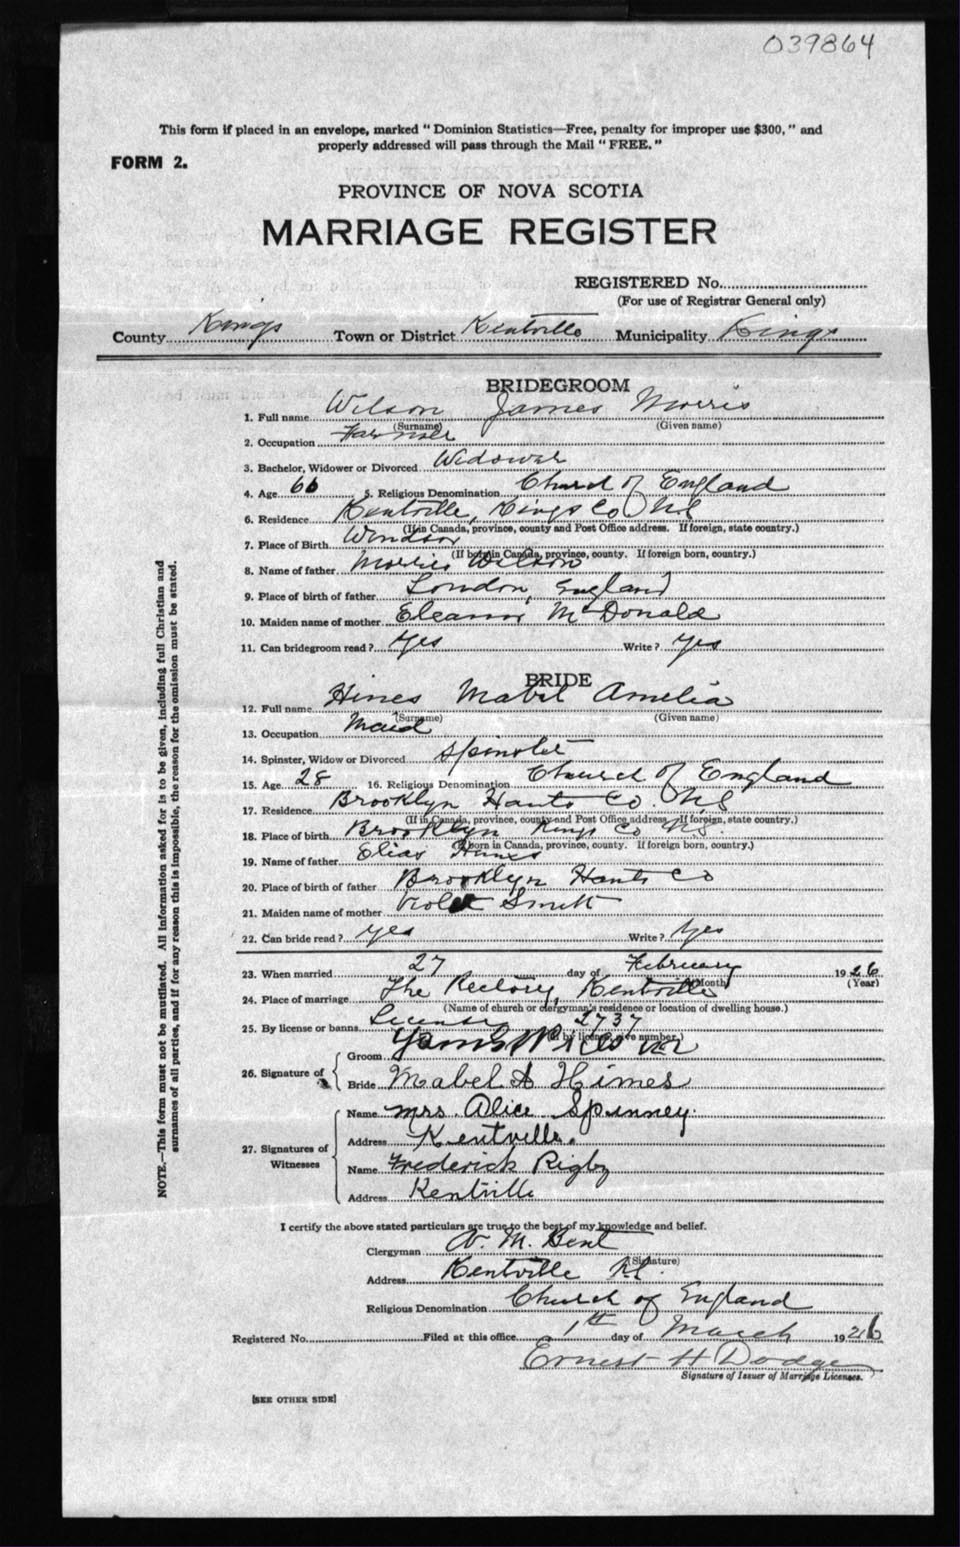 039864
This form if placed in an envelope, marked " Dominion Statistics—Free, penalty for improper use $300, " and
properly addressed will pass through the Mail " FREE. "
FORM 2.
PROVINCE OF NOVA SCOTIA
MARRIAGE REGISTER
REGISTERED No.
(For use of Registrar General only)
County Kings Town or District Kentville Municipality Kings
BRIDEGROOM
1. Full name Wilson James Morris
(Surname) (Given name)
2. Occupation Farmer
3. Bachelor, Widower or Divorced Widower
4. Age 66 5. Religious Denomination Church of England
6. Residence Kentville, Kings Co NS
(If in Canada, province, county and Post Office address. If foreign, state country.)
7. Place of Birth Windsor
(If born in Canada, province, county. If foreign born, country.)
8. Name of father Morris Wilson
9. Place of birth of father London, England
10. Maiden name of mother Eleanor McDonald
11. Can bridegroom read ? Yes Write ? Yes
BRIDE
12. Full name Hines Mabel Amelia
(Surname) (Given name)
13. Occupation Maid
14. Spinster, Widow or Divorced Spinster
15. Age 28 16. Religious Denomination Church of England
17. Residence Brooklyn Hants Co. NS
(If in Canada, province, county and Post Office address. If foreign, state country.)
18. Place of birth Brooklyn Kings Co NS.
(If born in Canada, province, county. If foreign born, country.)
19. Name of father Elias Hines
20. Place of birth of father Brooklyn Hants Co
21. Maiden name of mother Violet Smith
22. Can bride read ? yes Write ? Yes
23. When married 27 day of February 1926
(Month) (Year)
24. Place of marriage The Rectory, Kentville
(Name of church or clergyman's residence or location of dwelling house.)
25. By license or banns License 2737
(If by license, give number.)
26. Signature of
Groom
Bride Mabel A Himes
27. Signatures of Witnesses
Name Mrs. Alice Spinney.
Address Kentville.
Name Frederick Rigby
Address Kentville
I certify the above stated particulars are true to the best of my knowledge and belief.
Clergyman A. M. Bent
(Signature)
Address Kentville NS.
Religious Denomination Church of England
Registered No. Filed at this office 1th day of March 1926
Ernest H Dodge
Signature of Issuer of Marriage Licenses.
[SEE OTHER SIDE]
NOTE.—This form must not be mutilated. All information asked for is to be given, including full Christian and
surnames of all parties, and if for any reason this is impossible, the reason for the omission must be stated.